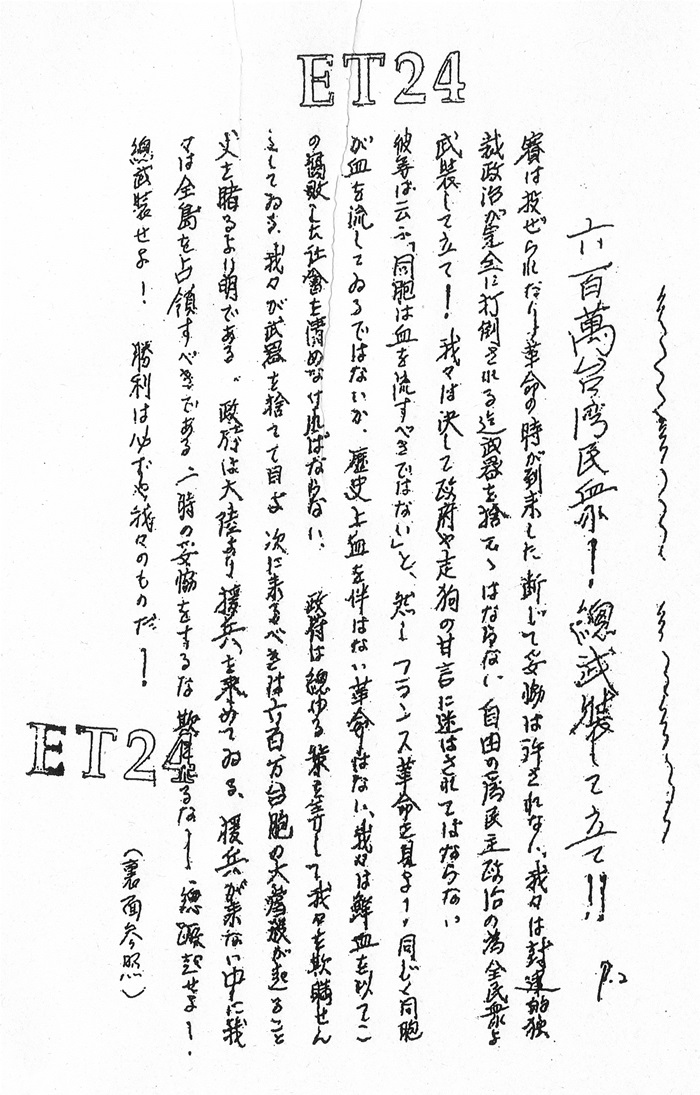 ET24
六百萬台湾民衆!總武裝して立て!!
P.2
賽は投ぜられたり!革命の時が到来した 断じて妥協は許されない、我々は封建的独
裁政治が完全に打倒される迄武器を捨てゝはならない 自由の為民主政治の為全民衆よ
武装して立て! 我々は決して政府や走狗の甘言に迷はされてはならない
彼等は云ふ「同胞は血を流すべきではない」と、然し フランス革命を見よ!同じく同胞
が血を流してゐるではないか、歴史上血を伴はない革命はない、我々は鮮血を以てこ
の腐敗した社會を清めなければならない、 政府は總ゆる策を弄して我々を欺瞞せん
としてゐる、我々が武器を捨てて 次に来るべきは六百万台胞の大虐殺が起ること
火を睹るより明である。政府は大陸より援兵を求めてゐる、援兵が来ない中に我
々は全島を占領すべきである 一時の妥協をするな 欺 るな!總蹶起せよ!
總武装せよ! 勝利は必ずや我々のものだ!
ET24
(裏面参照)